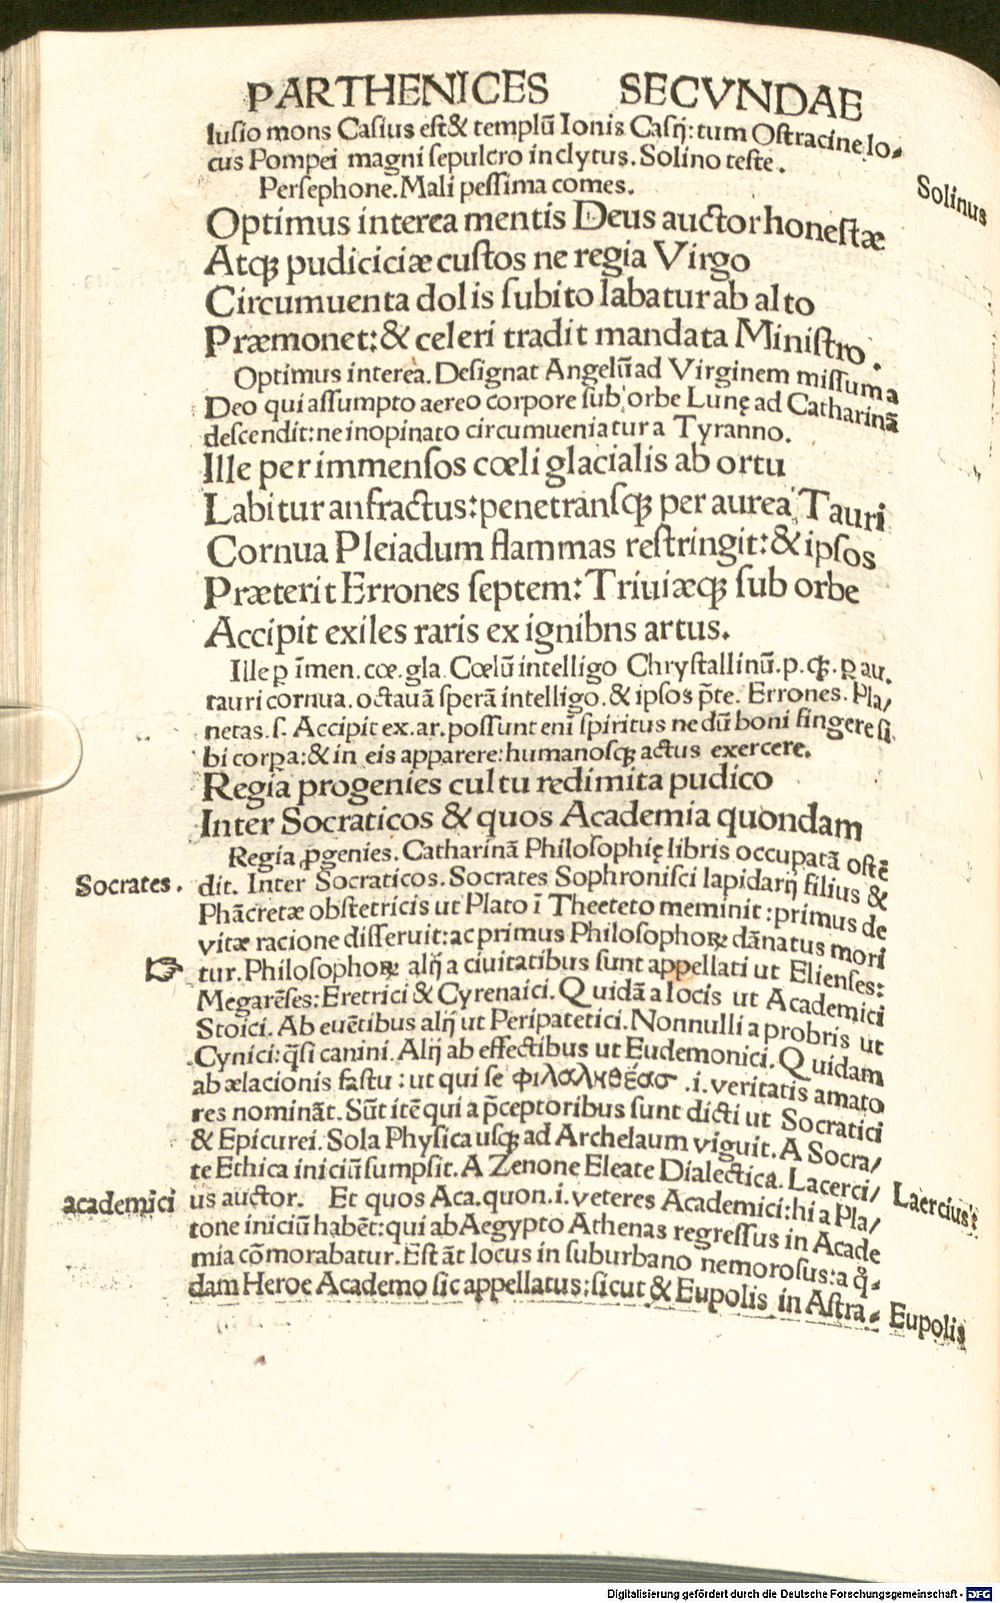 PARTHENICES SECVNDAE
luſio mons Caſius eſt& templũ Ionis Caſĳ: tum Oſtracine lo-
cus Pompei magni ſepulcro inclytus. Solino teſte.
Solinus
Perſephone. Mali peſſima comes.
Optimus interea mentis Deus auctor honeſtæ
Atqꝫ pudiciciæ cuſtos ne regia Virgo
Circumuenta dolis ſubito labatur ab alto
Præmonet: & celeri tradit mandata Miniſtro.
Optimus interea. Deſignat Angelũ ad Virginem miſſum a
Deo qui aſſumpto aereo corpore ſub orbe Lunę ad Catharinã
deſcendit: ne inopinato circumueniatur a Tyranno.
Ille per immenſos cœli glacialis ab ortu
Labitur anfractus: penetranſqꝫ per aurea Tauri
Cornua Pleiadum flammas reſtringit: & ipſos
Præterit Errones ſeptem: Triuiæqꝫ ſub orbe
Accipit exiles raris ex ignibns artus.
Ille ꝑ ĩmen. cœ. gla. Cœlũ intelligo Chryſtallinũ. p. qꝫ. ꝑ au.
tauri cornua. octauã ſperã intelligo. & ipſos p̃te. Errones. Pla/
netas. ſ. Accipit ex. ar. poſſunt eni ſpiritus nedũ boni fingere ſi
bi corpa: & in eis apparere: humanoſqꝫ actus exercere.
Regia progenies cultu redimita pudico
Inter Socraticos & quos Academia quondam
Regia ꝓgenies. Catharinã Philoſophię libris occupatã oſtẽ
Socrates.
dit. Inter Socraticos. Socrates Sophroniſci lapidarĳ filius &
Phãcretæ obſtetricis ut Plato ĩ Theeteto meminit: primus de
vitæ racione diſſeruit: ac primus Philoſophoꝝ dãnatus mori
☞ tur. Philoſophoꝝ alĳ a ciuitatibus ſunt appellati ut Elienſes:
Megarẽſes: Eretrici & Cyrenaici. Quidã a locis ut Academici
Stoici. Ab euẽtibus alĳ ut Peripatetici. Nonnulli a probris ut
Cynici: q̃ſi canini. Alĳ ab effectibus ut Eudemonici. Quidam
ab ælacionis faſtu: ut qui ſe φιλαληθέασ .i. veritatis amato
res nominãt. Sũt itẽ qui a p̃ceptoribus ſunt dicti ut Socratici
& Epicurei. Sola Phyſica uſqꝫ ad Archelaum viguit. A Socra/
te Ethica iniciũ ſumpſit. A Zenone Eleate Dialectica. Lacerci/
Laercius
academici
us auctor. Et quos Aca. quon. i. veteres Academici: hi a Pla/
tone iniciũ habẽt: qui ab Aegypto Athenas regreſſus in Acade
mia cõmorabatur. Eſt ãt locus in ſuburbano nemoroſus: a q̊-
dam Heroe Academo ſic appellatus: ſicut & Eupolis in Aſtra-
Eupolis
Digitalisierung gefördert durch die Deutsche Forschungsgemeinschaft - DFG